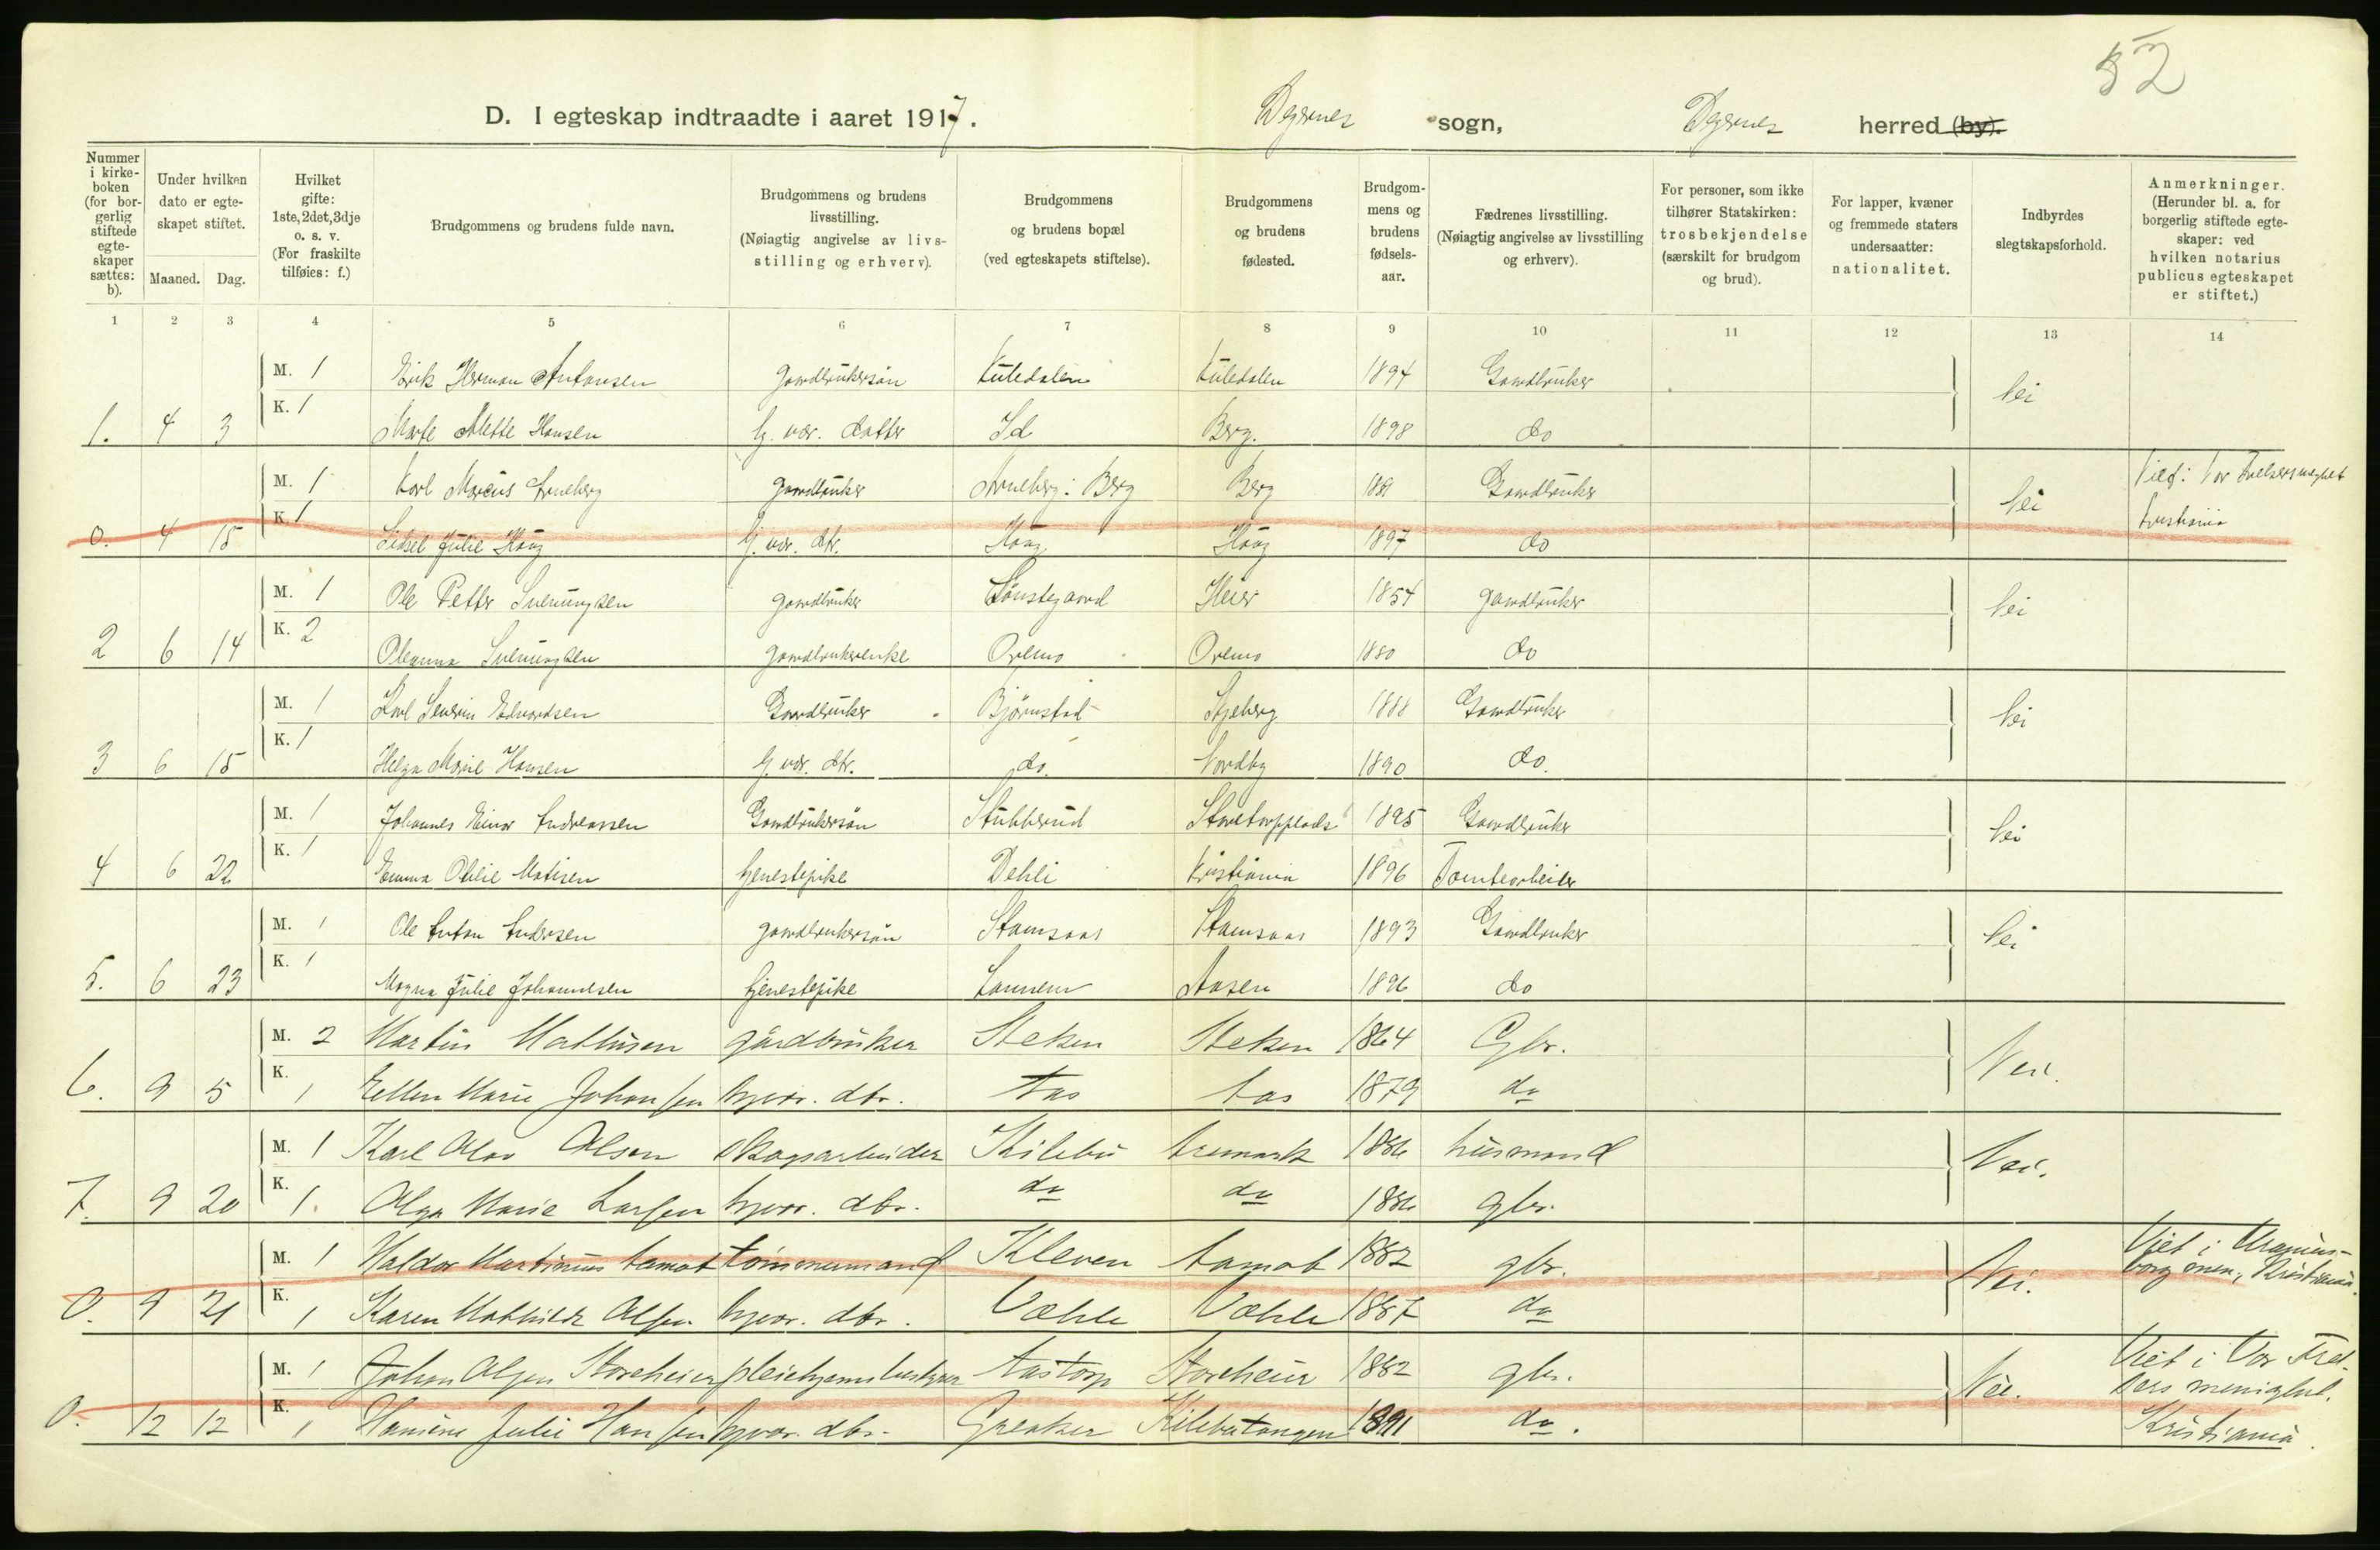 52
D. I egteskap indtraadte i aaret 1917. Degernes sogn, Degernes herred (by).
Nummer i kirkeboken (for borgerlig stiftede egteskaper sættes: b).
Under hvilken dato er egteskapet stiftet.
Maaned. Dag.
Hvilket gifte: 1ste, 2det, 3dje o. s. v. (For fraskilte tilføies: f.)
Brudgommens og brudens fulde navn.
Brudgommens og brudens livsstilling. (Nøiagtig angivelse av livsstilling og erhverv).
Brudgommens og brudens bopæl (ved egteskapets stiftelse).
Brudgommens og brudens fødested.
Brudgommens og brudens fødselsaar.
Fædrenes livsstilling. (Nøiagtig angivelse av livsstilling og erhverv).
For personer, som ikke tilhører Statskirken: trosbekjendelse (særskilt for brudgom og brud).
For lapper, kvæner og fremmede staters undersaatter: nationalitet.
Indbyrdes slegtskapsforhold.
Anmerkninger. (Herunder bl. a. for borgerlig stiftede egteskaper: ved hvilken notarius publicus egteskapet er stiftet.)
1 2 3 4 5 6 7 8 9 10 11 12 13 14
M. 1 Erik Herman Antonsen Gaardbrukersøn Kuledalen Kuledalen 1894 Gaardbruker Nei
1. 4 3 K. 1 Marte Mette Hansen Hj. vær. datter Id Berg. 1898 do
M. 1 Karl Marius Arneberg Gaardbruker Arneberg i Berg Berg Gaardbruker Nei Viet i Vor Frelsersmenighet
0. 4 15 K. 1 Sidsel Julie Haug Hj. vær. dtr. Haug Haug 1897 do Kristiania
M. 1 Ole Petter Svenungsen gaardbruker Tønstegaard Heier 1854 gaardbruker Nei
2 6 14 K. 2 Oleanna Svenungsen gaardbrukerenke Oremo Oremo 1880 do
M. 1 Karl Severin Edvardsen Gaardbruker Bjørnstad Skjeberg 1888 Gaardbruker Nei
3 6 15 K. 1 Helga Marie Hansen Hj. vær. dtr. do. Nordby 1890 do.
M. 1 Johannes Einar Andreassen Gaardbrukersøn Stubberud Storetorpplads 1895 Gaardbruker Nei
4 6 22 K. 1 Emma Otilie Matisen tjenestepike Dehli Kristiania 1896 Tomtearbeider
M. 1 Ole Anton Andersen gaardbrukersøn Stamsaas Stamsaas 1893 Gaardbruker Nei
5. 6 23 K. 1 Magna Julie Johannesen tjenestepike Lannem Aasen 1896 do
M. 2 Martin Mathisen gårdbruker Steken Steken 1864 Gbr. Nei.
6. 9 5 K. 1 Ellen Marie Johansen hjvær. dtr. Aas Aas 1879 do
M. 1 Karl Olav Olsen skogsarbeider Kilebu Aremark 1886 husmand Nei.
7. 9 20 K. 1. Olga Marie Larsen hjvær. dtr. do do 1886 gbr.
M. 1 Haldor Martinius Aamot tømmermand Kleven Aamot 1882 gbr. Nei. Viet i Uraniens-
0. 9 21 K. 1 Karen Mathilde Olsen hjvær. dtr. Væhle Væhle 1887 do borg men., Kristiania.
M. 1 Johan Olsen Storeheier pleiehjemsbestyrer Aastorp Storeheier 1882 gbr. Nei. Viet i Vor Frel-
sers menighet.
0. 12 12 K. 1 Hansine Julie Hansen hjvær. dtr. Greaker Kilebutangen 1891 do. Kristiania.